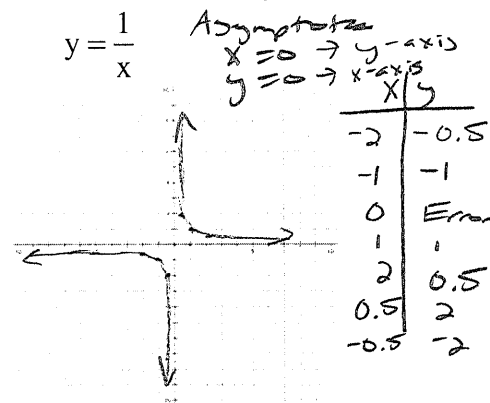 y = 1/x
Asymptotes
x = 0 → y-axis
y = 0 → x-axis
x | y
-2 | -0.5
-1 | -1
0 | Error
1 | 1
2 | 0.5
0.5 | 2
-0.5 | -2